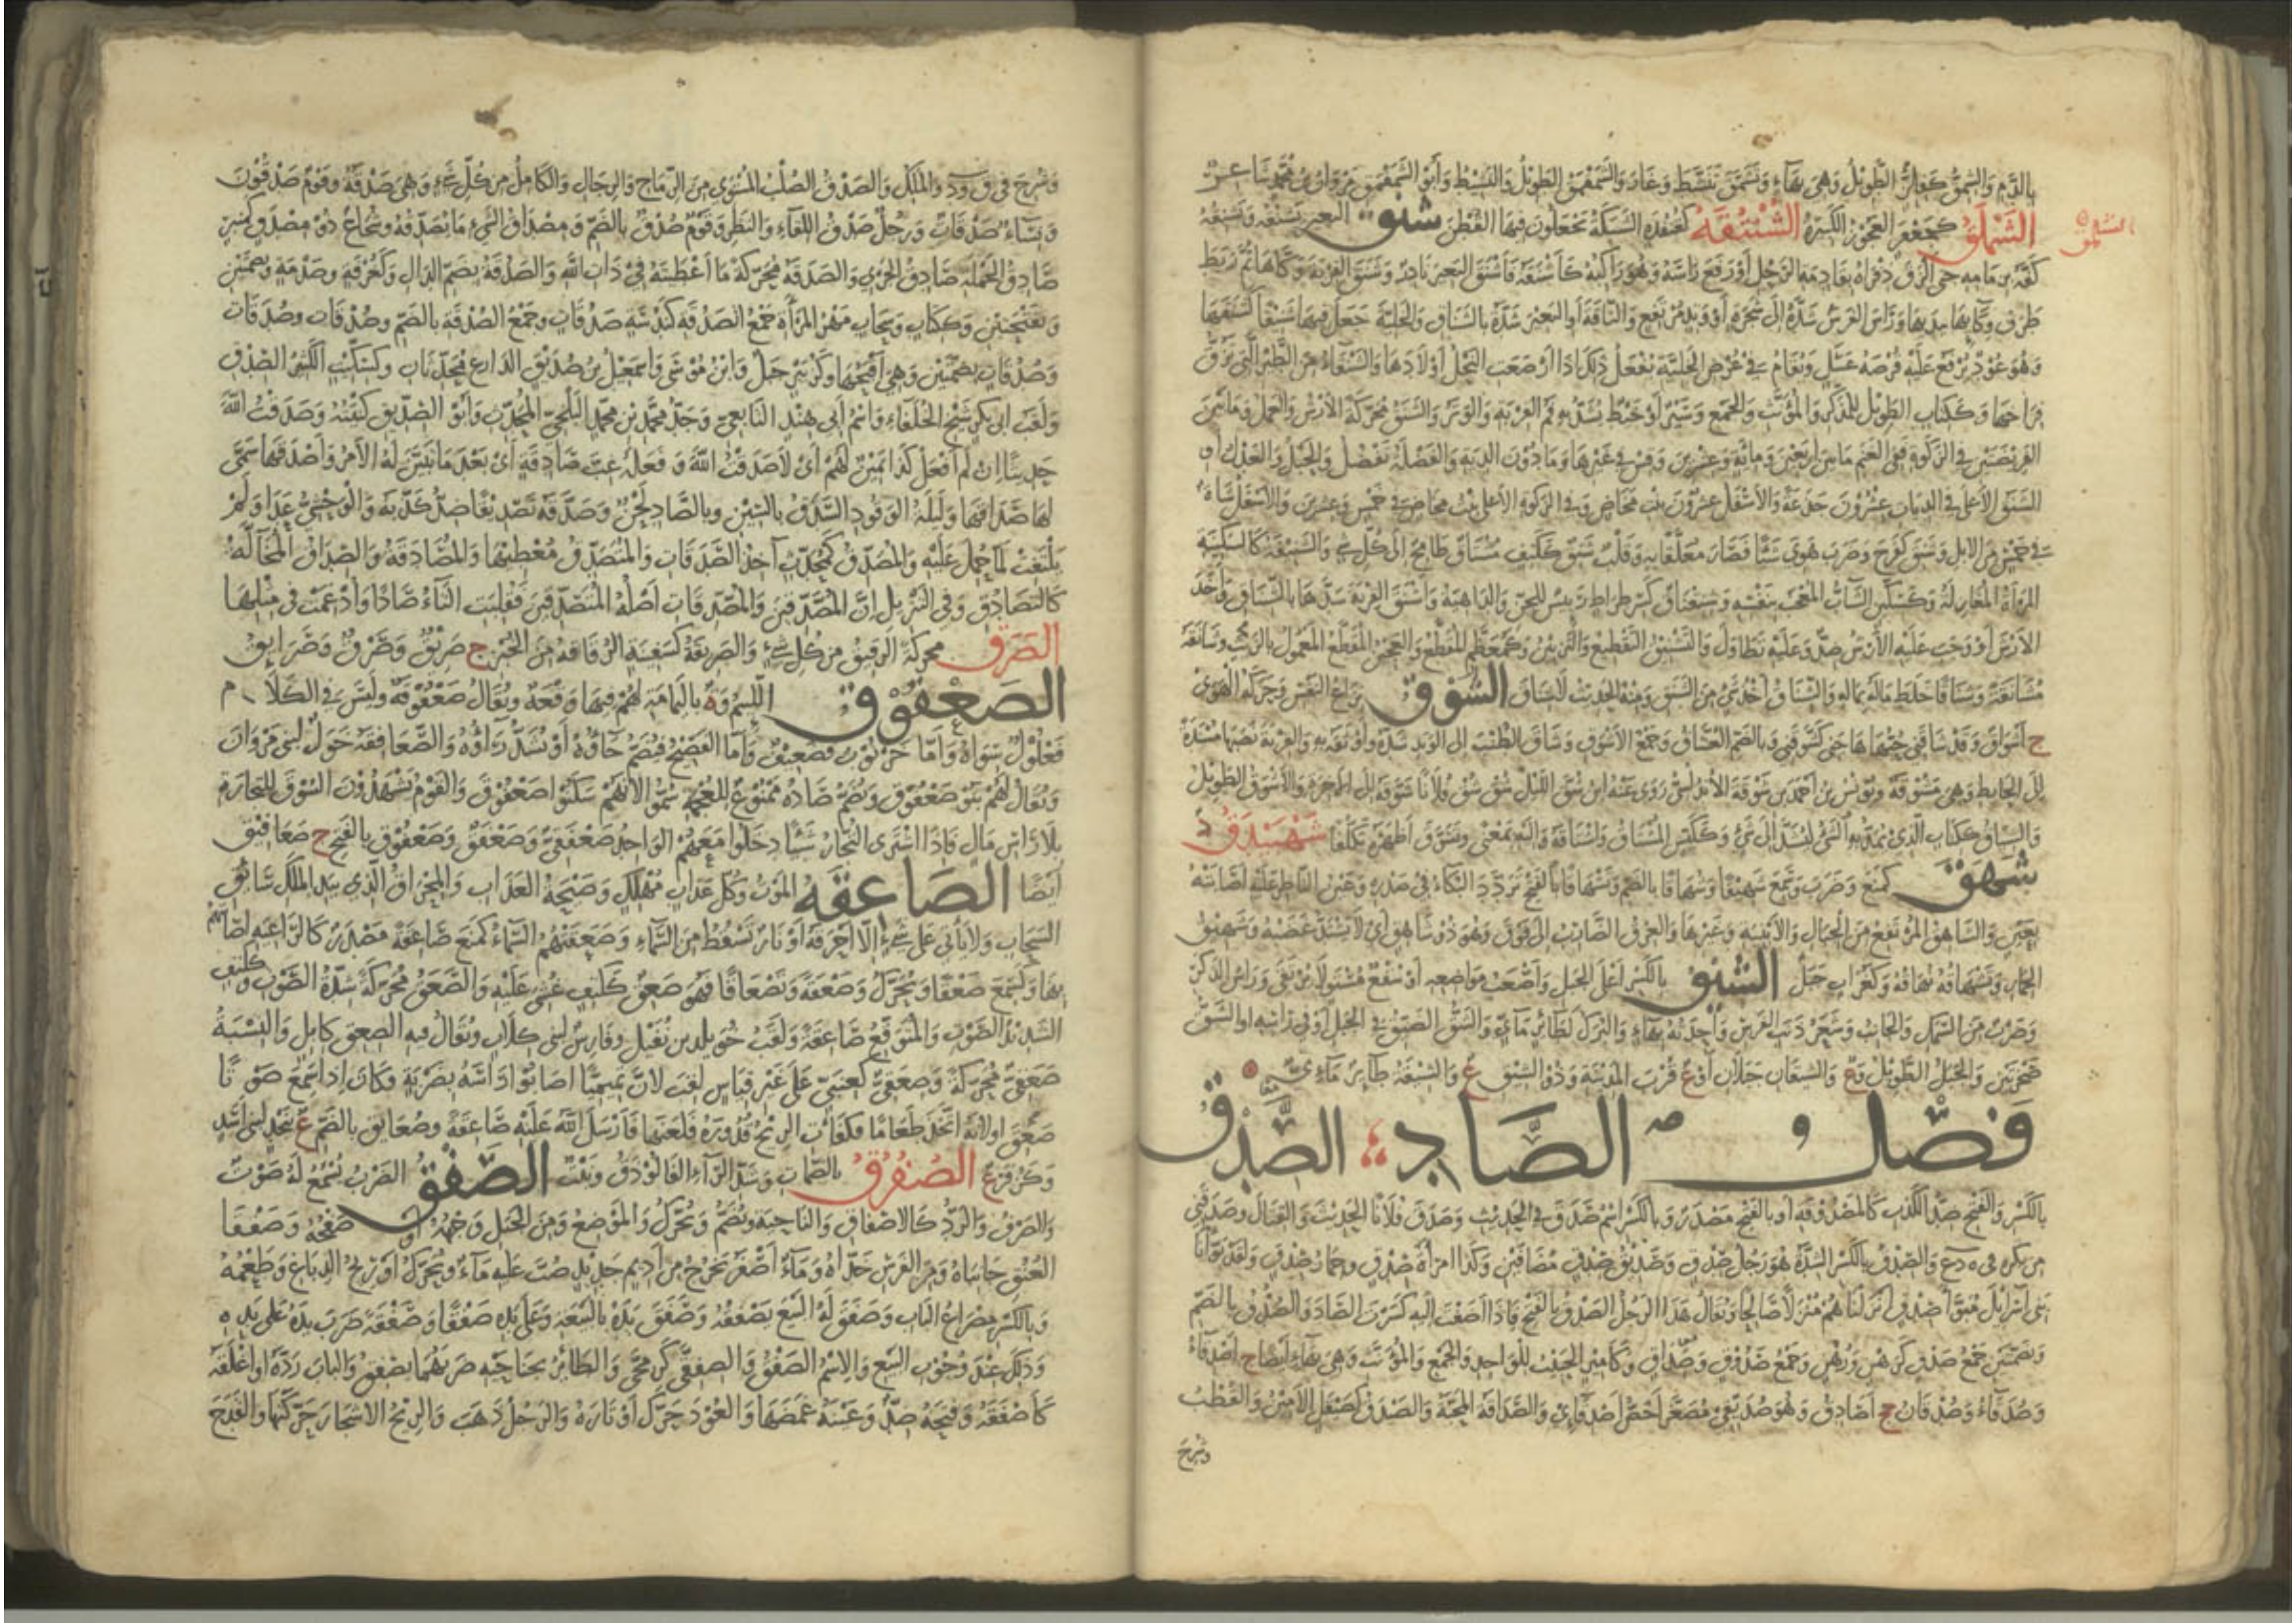 بالدم والشمق كفلز الطويل وهي بهاء وتشمق تنشط وغار والشمقمق الطويل والنشيط وأبو الشمقمق مروان بن محمد شاعر
الشملق كجعفر العجوز الكبيرة الشنتقة كقنفذة الشبكة يجعلون فيها القطن شنق البعير يشنقه ويشنقه
الشملق
طرف وكاءها بيديها ورأس الفرس شده إلى شجرة أو وتد مرتفع والناقة أو البعير شده بالشناق والخلية جعل فيها شنيقا كشنقها
وهو عود يرفع عليه قرصة عسل ويقام في عرض الخلية يفعل ذلك إذا أرضعت النحل أولادها والشنقاء من الطير التي تزق
فراخها وككتاب الطويل للمذكر والمؤنث والجمع وسير أو خيط يشد به فم القربة والوتر والشنق محركة الأرش والعمل وما بين
الفريضتين في الزكاة ففي الغنم ما بين أربعين ومائة وعشرين وقس في غيرها وما دون الدية والفضلة تفضل والحبل والعدل أو
الشنق الأعلى في الديات عشرون جذعة والأسفل عشرون بنت مخاض وفي الزكوة الأعلى بنت مخاض في خمس وعشرين والأسفل شاة
في خمس من الإبل وشنق كفرح وضرب هوي شيئا فصار معلقا به وقلب شنق ككتف مشتاق طامح إلى كل شيء والشنيقة كالسكينة
المرأة المغازلة وكسكين الشاب المعجب بنفسه وشنقناق كسرطراط رئيس للجن والداهية وأشنق القربة شدها بالشناق وأخذ
الأرش أو وجب عليه الأرش ضد وعليه تطاول والتشنيق التقطيع والتزيين وكمعظم المقطع والعجين المقطع المعمول بالزيت وشانقه
مشانقة وشناقا خلط ماله بماله والشناق أخذ شيء من الشنق ومنه الحديث لا شناق الشوق نزاع النفس وحركة الهوى
ج أشواق وقد شاقني حبها هاجني كشوقني وبالضم العشاق وجمع الأشوق وشاق الطنب إلى الوتد شده وأوثقه به والقربة نصبها مسندة
إلى الحائط وهي مشوقة ويونس بن أحمد بن شوقة الأندلسي روى عنه ابن شق الليل شق شق فلانا شوقه إلى الآخرة والأشوق الطويل
والشياق ككتاب الذي يمد به الشيء ليشد إلى شيء وككيس المشتاق واشتاقه وإليه بمعنى وتشوق أظهره تكلفا شهبندق د
شهق كمنع وضرب وسمع شهيقا وشهاقا بالضم وتشهاقا بالفتح تردد البكاء في صدره وعين الناظر عليه أصابته
بعين والشاهق المرتفع من الجبال والأبنية وغيرها والعرق الضارب إلى فوق وهو ذو شاهق أي لا يشتد غضبه وشهيق
الحمار وتشهاقه نهاقه وكغراب جبل الشيق بالكسر أعلى الجبل وأصعب مواضعه أو سقع مستو لا يرتقى ورأس الذكر
وضرب من السمك والجانب وشعر ذنب الفرس واحدته بهاء والبرك لطائر مائي والشق الضيق في الجبل أو في رأسه أو الشق
صخرتين والجبل الطويل وع والشيقان جبلان أو ع قرب المدينة وذو الشيق ع والشيقة طائر مائي
فصل الصاد الصدق
بالكسر والفتح ضد الكذب كالمصدوقة أو بالفتح مصدر وبالكسر اسم صدق في الحديث وصدق فلانا الحديث والقتال وصدقني
سن بكره في ه د ع والصدق بالكسر الشدة هو رجل صدق وصديق صدق مضافين وكذا امرأة صدق وحمار صدق ولقد بوأنا
بني إسرائيل مبوأ صدق أنزلناهم منزلا صالحا ويقال هذا الرجل الصدق بالفتح فإذا أضفت إليه كسرت الصاد والصدق بالضم
وبضمتين جمع صدق كرهن ورهن وجمع صدوق وصداق وكأمير الحبيب للواحد والجمع والمؤنث وهي بهاء أيضا ج أصدقاء
وصدقاء وصدقان جج أصادق وهو صديقي مصغرا أخص أصدقائي والصداقة المحبة والصيدق كصيقل الأمين والقطب
وشرح
وشرح في ق و د والملك والصدق الصلب المستوي من الرماح والرجال والكامل من كل شيء وهي صدقة وقوم صدقون
ونساء صدقات ورجل صدق اللقاء والنظر وقوم صدق بالضم ومصداق الشيء ما يصدقه وشجاع ذو مصدق كمنبر
صادق الحملة صادق الجري والصدقة محركة ما أعطيته في ذات الله والصدقة بضم الدال وكغرفة وصدمة وبضمتين
وبفتحتين وككتاب وسحاب مهر المرأة جمع الصدقة كندسة صدقات وجمع الصدقة بالضم وصدقات وصدقات
وصدقات بضمتين وهي أقبحها وكزبير جبل وابن موسى وإسمعيل بن صديق الذارع محدثان وكسكيت الكثير الصدق
ولقب أبي بكر شيخ الخلفاء واسم أبي هند التابعي وجد محمد بن محمد البلخي المحدث وأبو الصديق كنيته وصدقت الله
حديثا إن لم أفعل كذا يمين لهم أي لا صدقت الله وفعله غب صادقة أي بعد ما تبين له الأمر وأصدقها سمى
لها صداقها وليلة الوقود السدق بالسين وبالصاد لحن وصدقه تصديقا ضد كذبه والوحشي عدا ولم
يلتفت لما حمل عليه والمصدق كمحدث آخذ الصدقات والمتصدق معطيها والمصادقة والصداق المخالة
كالتصادق وفي التنزيل إن المصدقين والمصدقات أصله المتصدقين فقلبت التاء صادا وأدغمت في مثلها
الصرق محركة الرقيق من كل شيء والصريقة كسفينة الرقاقة من الخبز ج صريق وصرق وصرايق
الصعفوق اللئيم وة باليمامة لهم فيها وقعة ويقال صعفوقة وليس في الكلام
فعلول سواه وأما خرنوب فضعيف وأما الفصيح فيضم خاؤه أو يشد راؤه والصعافقة خول لبني مروان
ويقال لهم بنو صعفوق ويضم صاده ممنوع للعجمة سموا لأنهم سكنوا صعفوق والقوم يشهدون السوق للتجارة
بلا رأس مال فإذا اشترى التجار شيئا دخلوا معهم الواحد صعفقي وصعفق وصعفوق بالفتح ج صعافيق
أيضا الصاعقة الموت وكل عذاب مهلك وصيحة العذاب والمخراق الذي بيد الملك سائق
السحاب ولا يأتي على شيء إلا أحرقه أو نار تسقط من السماء وصعقتهم السماء كمنع صاعقة مصدر كالراغية أصابتهم
بها وكسمع صعقا ويحرك وصعقة وتصعاقا فهو صعق ككتف غشي عليه والصعق محركة شدة الصوت وككتف
الشديد الصوت والمتوقع صاعقة ولقب خويلد بن نفيل وفارس لبني كلاب ويقال فيه الصعق كإبل والنسبة
صعقي محركة وصعقي كعنبي على غير قياس لقب لأن تميما أصابوا رأسه بضربة فكان إذا سمع صوتا
صعق أو لأنه اتخذ طعاما فكفأت الريح قدوره فلعنها فأرسل الله عليه صاعقة وصعايق بالضم ع بنجد لبني أسد
وكزفر ع الصفرق بالضمات وشد الراء الفالوذق ونبت الصفق الضرب يسمع له صوت
والصرف والرد كالإصفاق والناحية ويضم ويحرك والموضع ومن الجبل وجهه أو صفحه وصفقا
العنق جانباه ومن الفرس خداه وماء أصفر يخرج من أديم جديد صب عليه ماء ويحرك أو ريح الدباغ وطعمه
وبالكسر مصراع الباب وصفق له البيع يصفقه وصفق يده بالبيعة وعلى يده صفقا وصفقة ضرب يده على يده
وذلك عند وجوب البيع والاسم الصفق والصفقى كزمجى والطائر بجناحيه ضربهما يصفق والباب رده أو أغلقه
كأصفقه وفتحه ضد وعينه غمضها والعود حرك أوتاره والرجل ذهب والريح الأشجار حركتها والقدح